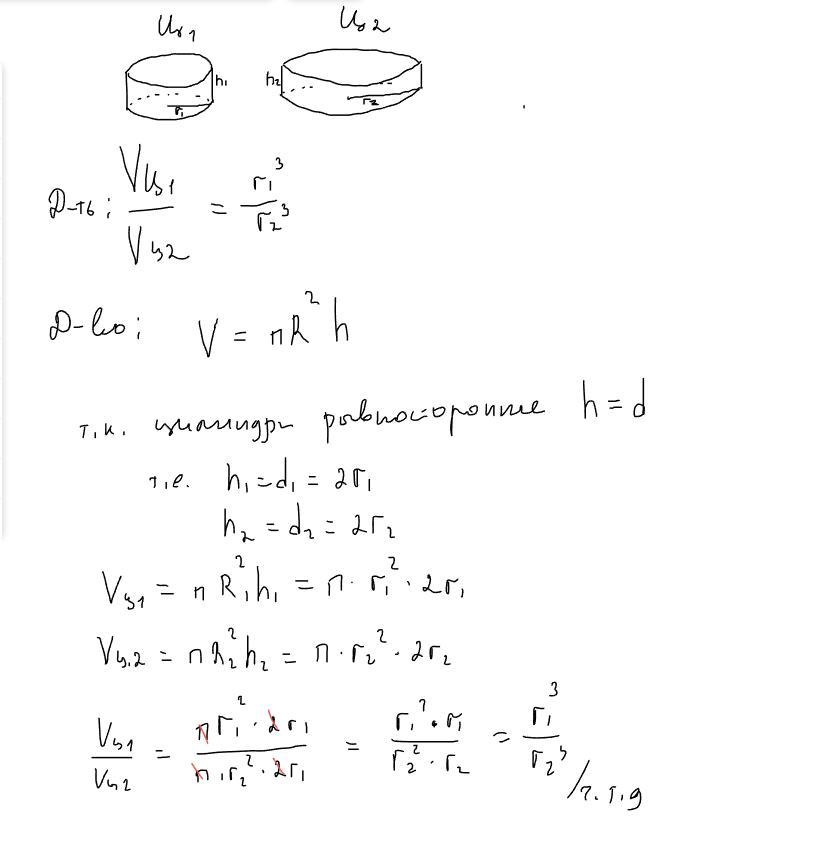 Ц1 Ц2
h₁ h₂
r₁ r₂
Д-ть: Vц1/Vц2 = r₁³/r₂³
Д-во: V = πR²h
т.к. цилиндры равносторонние h = d
т.е. h₁ = d₁ = 2r₁
h₂ = d₂ = 2r₂
Vц1 = πR₁²h₁ = π · r₁² · 2r₁
Vц.2 = πR₂²h₂ = π · r₂² · 2r₂
Vц1/Vц2 = πr₁² · 2r₁/π · r₂² · 2r₁ = r₁² · r₁/r₂² · r₂ = r₁³/r₂³
/ч.т.д